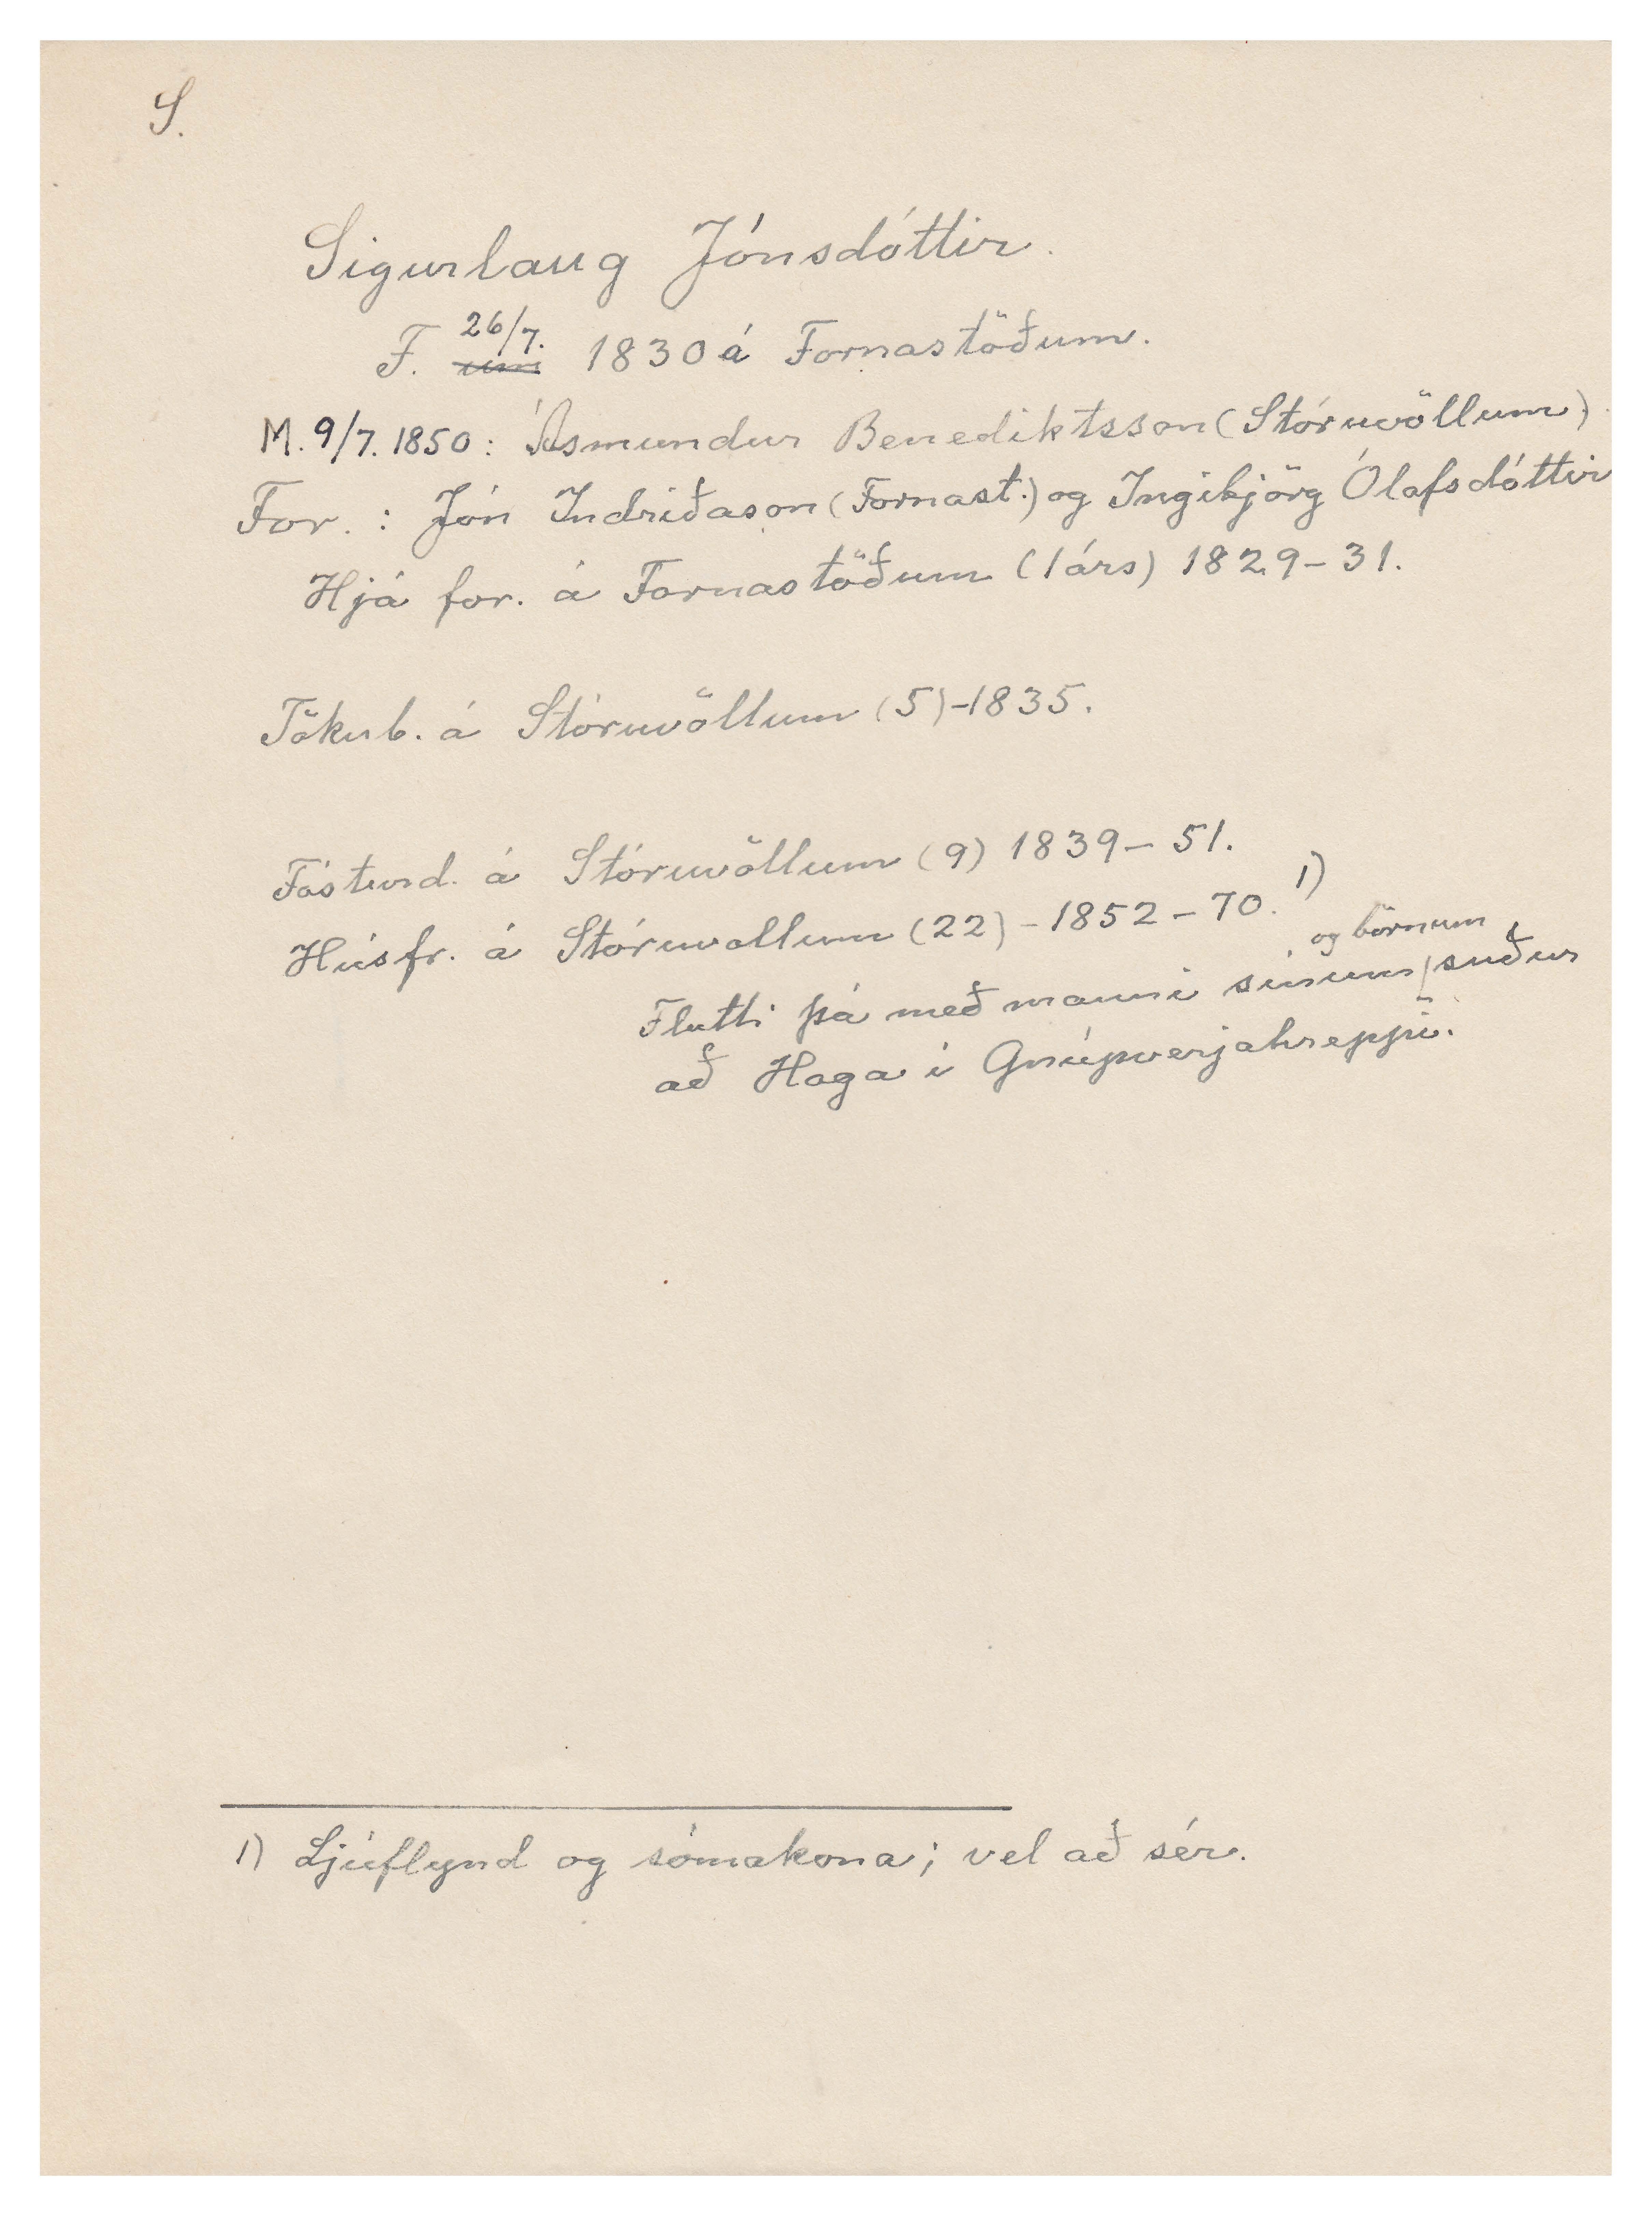 S.
Sigurlaug Jónsdóttir.
F. ~~um~~ 26/7. 1830 á Fornastöðum.
M. 9/7. 1850: Ásmundur Benediktsson (Stóruvöllum)
For.: Jón Indriðason (Fornast.) og Ingibjörg Ólafsdóttir
Hjá for. á Fornastöðum (1 árs) 1829-31.
Tökub. á Stóruvöllum (5)-1835.
Fósturd. á Stóruvöllum (9) 1839-51.
Húsfr. á Stóruvollum (22) - 1852-70. 1)
Flutti þá með manni sínum og börnum suður
að Haga í Gnúpverjahreppi.
1) Ljúflynd og sómakona; vel að sér.